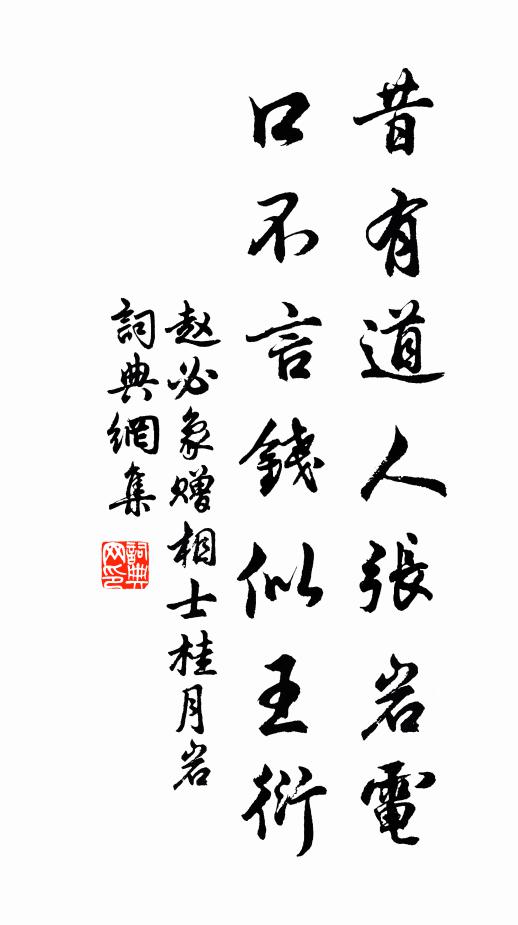 昔有道人張岩電
口不言錢似王衍
赵必象赠相士桂月岩
詞典網集
詞典网印